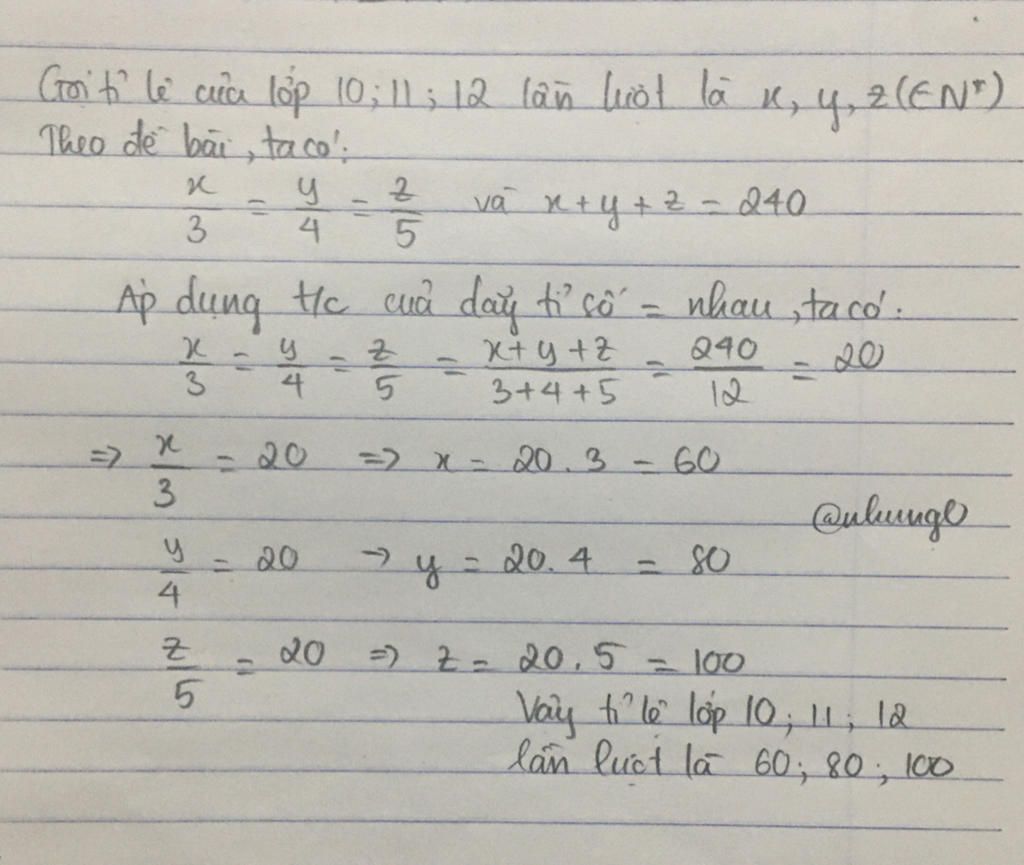 Gọi tỉ lệ của lớp 10; 11; 12 lần lượt là x, y, z (∈ N*)
Theo đề bài, ta có:
x/3 = y/4 = z/5 và x + y + z = 240
Áp dụng t/c của dãy tỉ số = nhau, ta có:
x/3 = y/4 = z/5 = (x + y + z)/(3 + 4 + 5) = 240/12 = 20
=> x/3 = 20 => x = 20 . 3 = 60
@nhungl
y/4 = 20 → y = 20. 4 = 80
z/5 = 20 => z = 20. 5 = 100
Vậy tỉ lệ lớp 10; 11; 12
lần lượt là 60; 80; 100